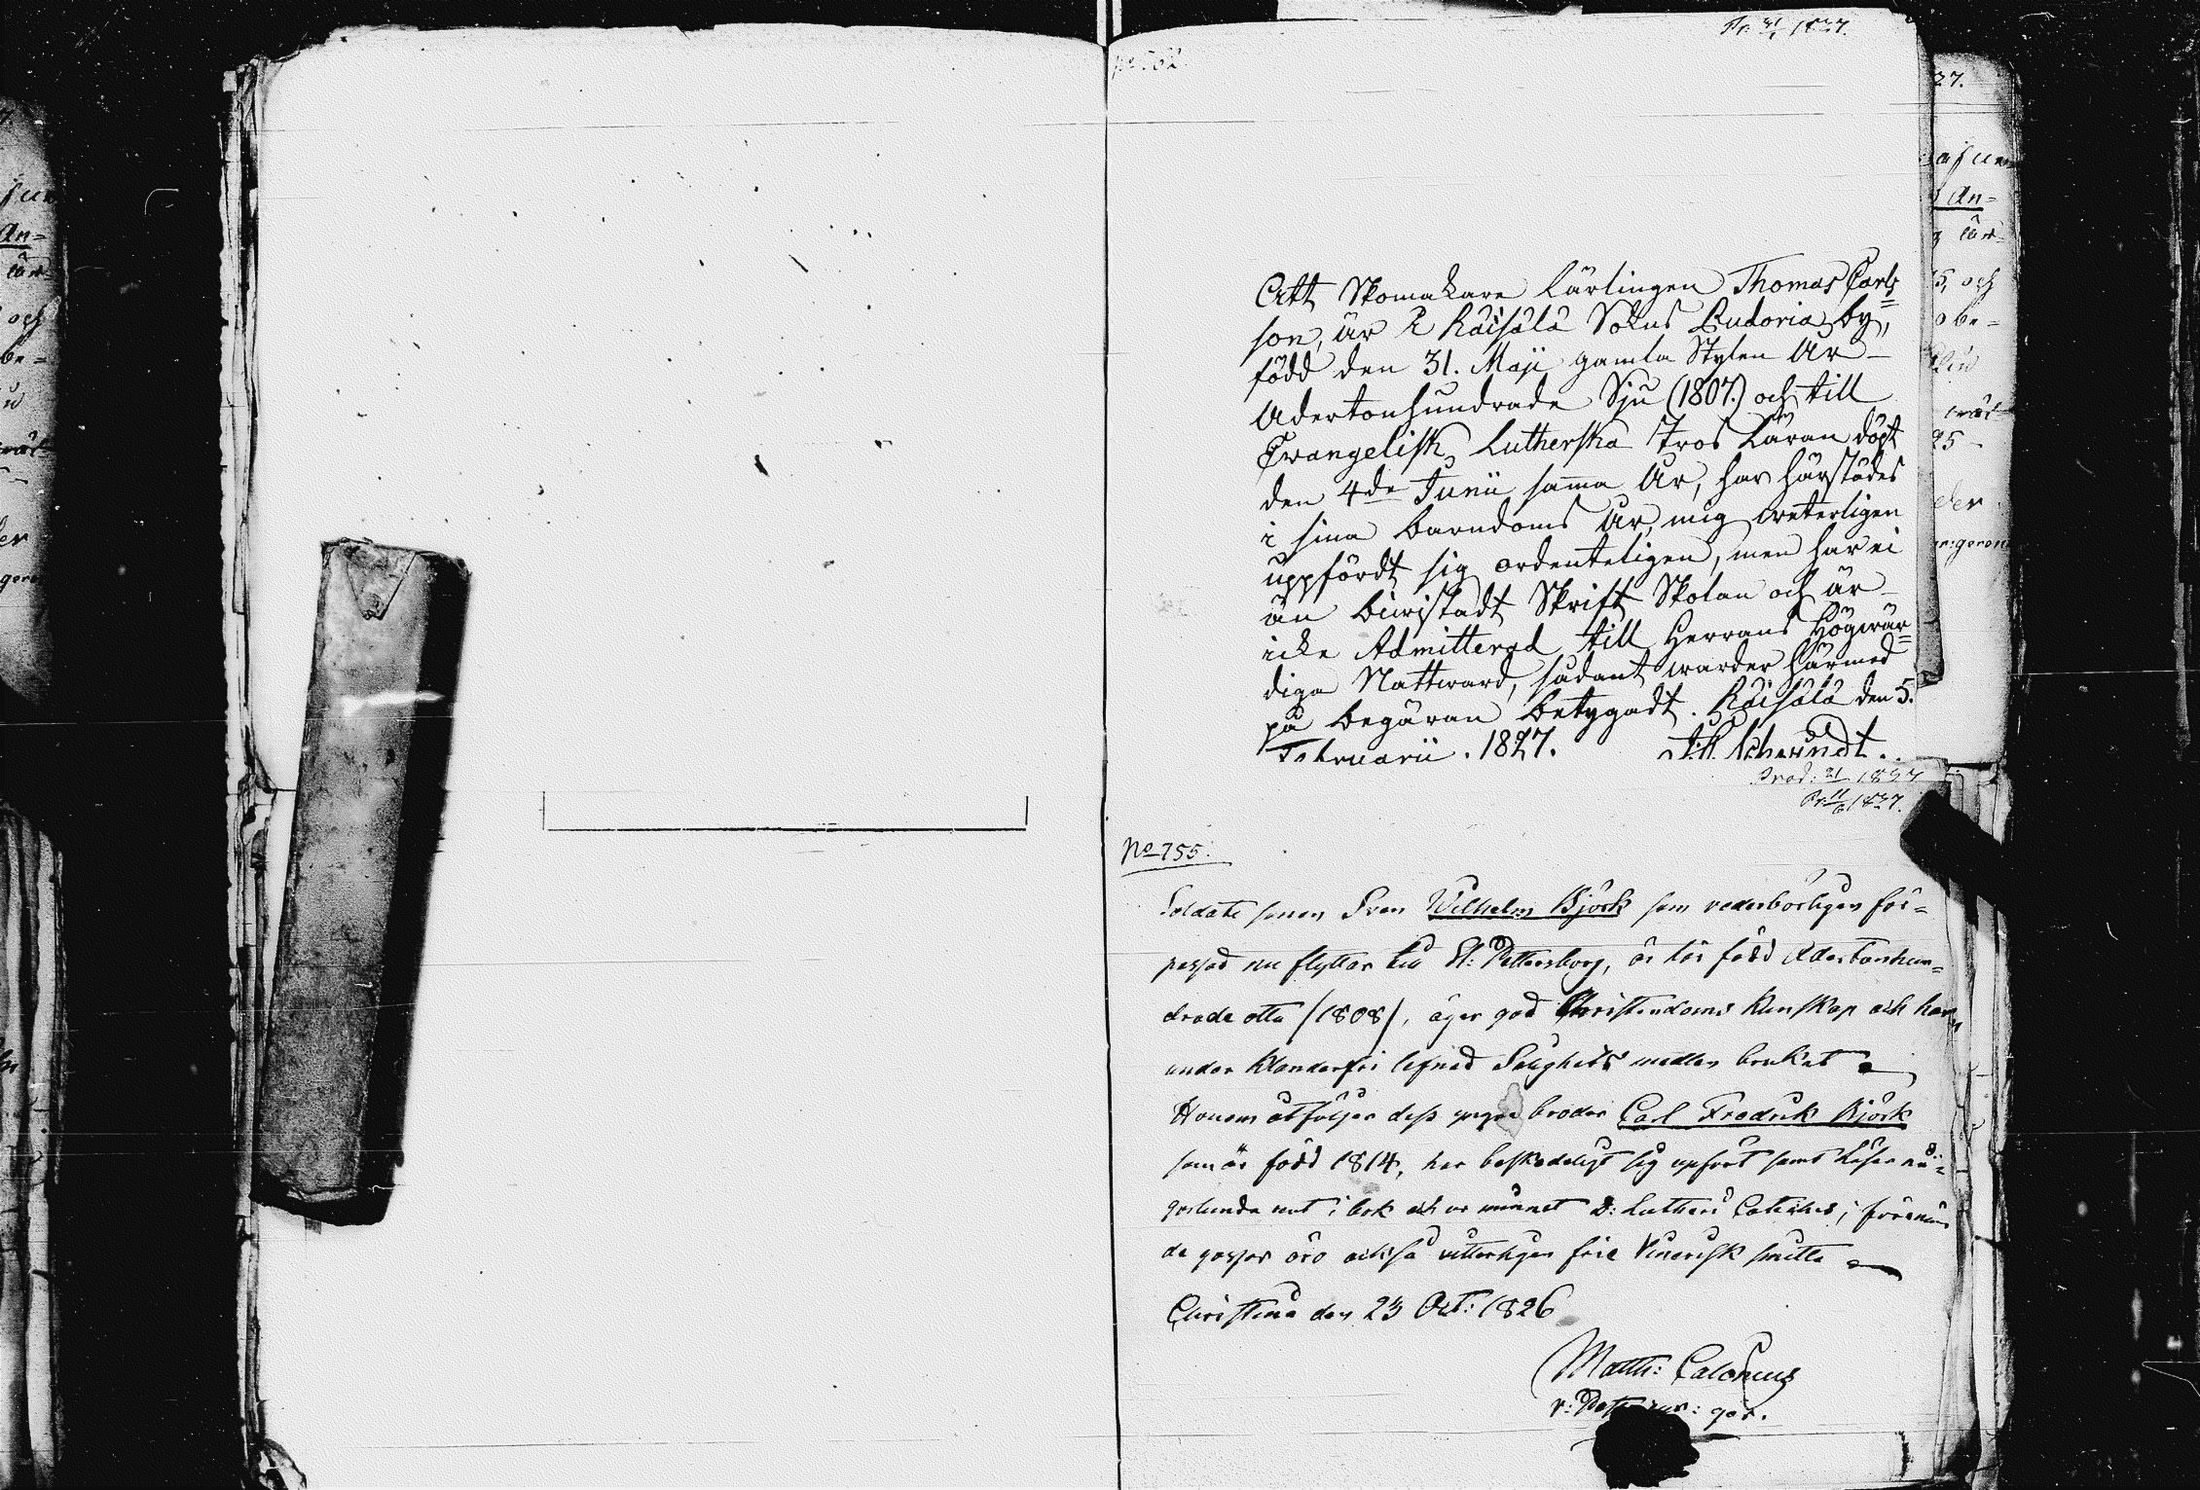 Pr. 31/1 1827.
Att Skomakare Lärlingen Thomas Carls=
son, är i Räisälä Sokns Ludoria by,
född den 31. Maji gamla Stylen År
Adertonhundrade Sju (1807.) och till
Evangelisk Lutherska Tros Läran döpt
den 4de Junii samma År, har härstädes
i sina barndoms År, mig veterligen
uppfördt sig ordenteligen, men har ei
än bivistadt Skrift Skolan och är
icke Admitterad till Herrans Högwär=
diga Nattward, sådant warder härmed
på begäran betygadt. Räisälä den 5.
Februarii. 1827.
Pr. 11/6 1827.
No 755.
Soldats sonen Sven Wilhelm Björk som vederbörligen för=
passad nu flyttar till St: Pettersburg, är här född Adertonhun=
drade otta /1808/, äger god Christendoms kunskap och har
under klanderfri lefnad Salighets medlen brukat
Honom åtföljer dess yngre broder Carl Fredrik Björk
som är född 1814, har beskedeligt sig upfört samt läser nå=
gorlunda rent i bok och ur minnet D: Lutheri Cateches; förenäm
de gossar äro också vitterligen frie Venerisk smitta
Christina den 23 Oct: 1826
Matth: Calonius